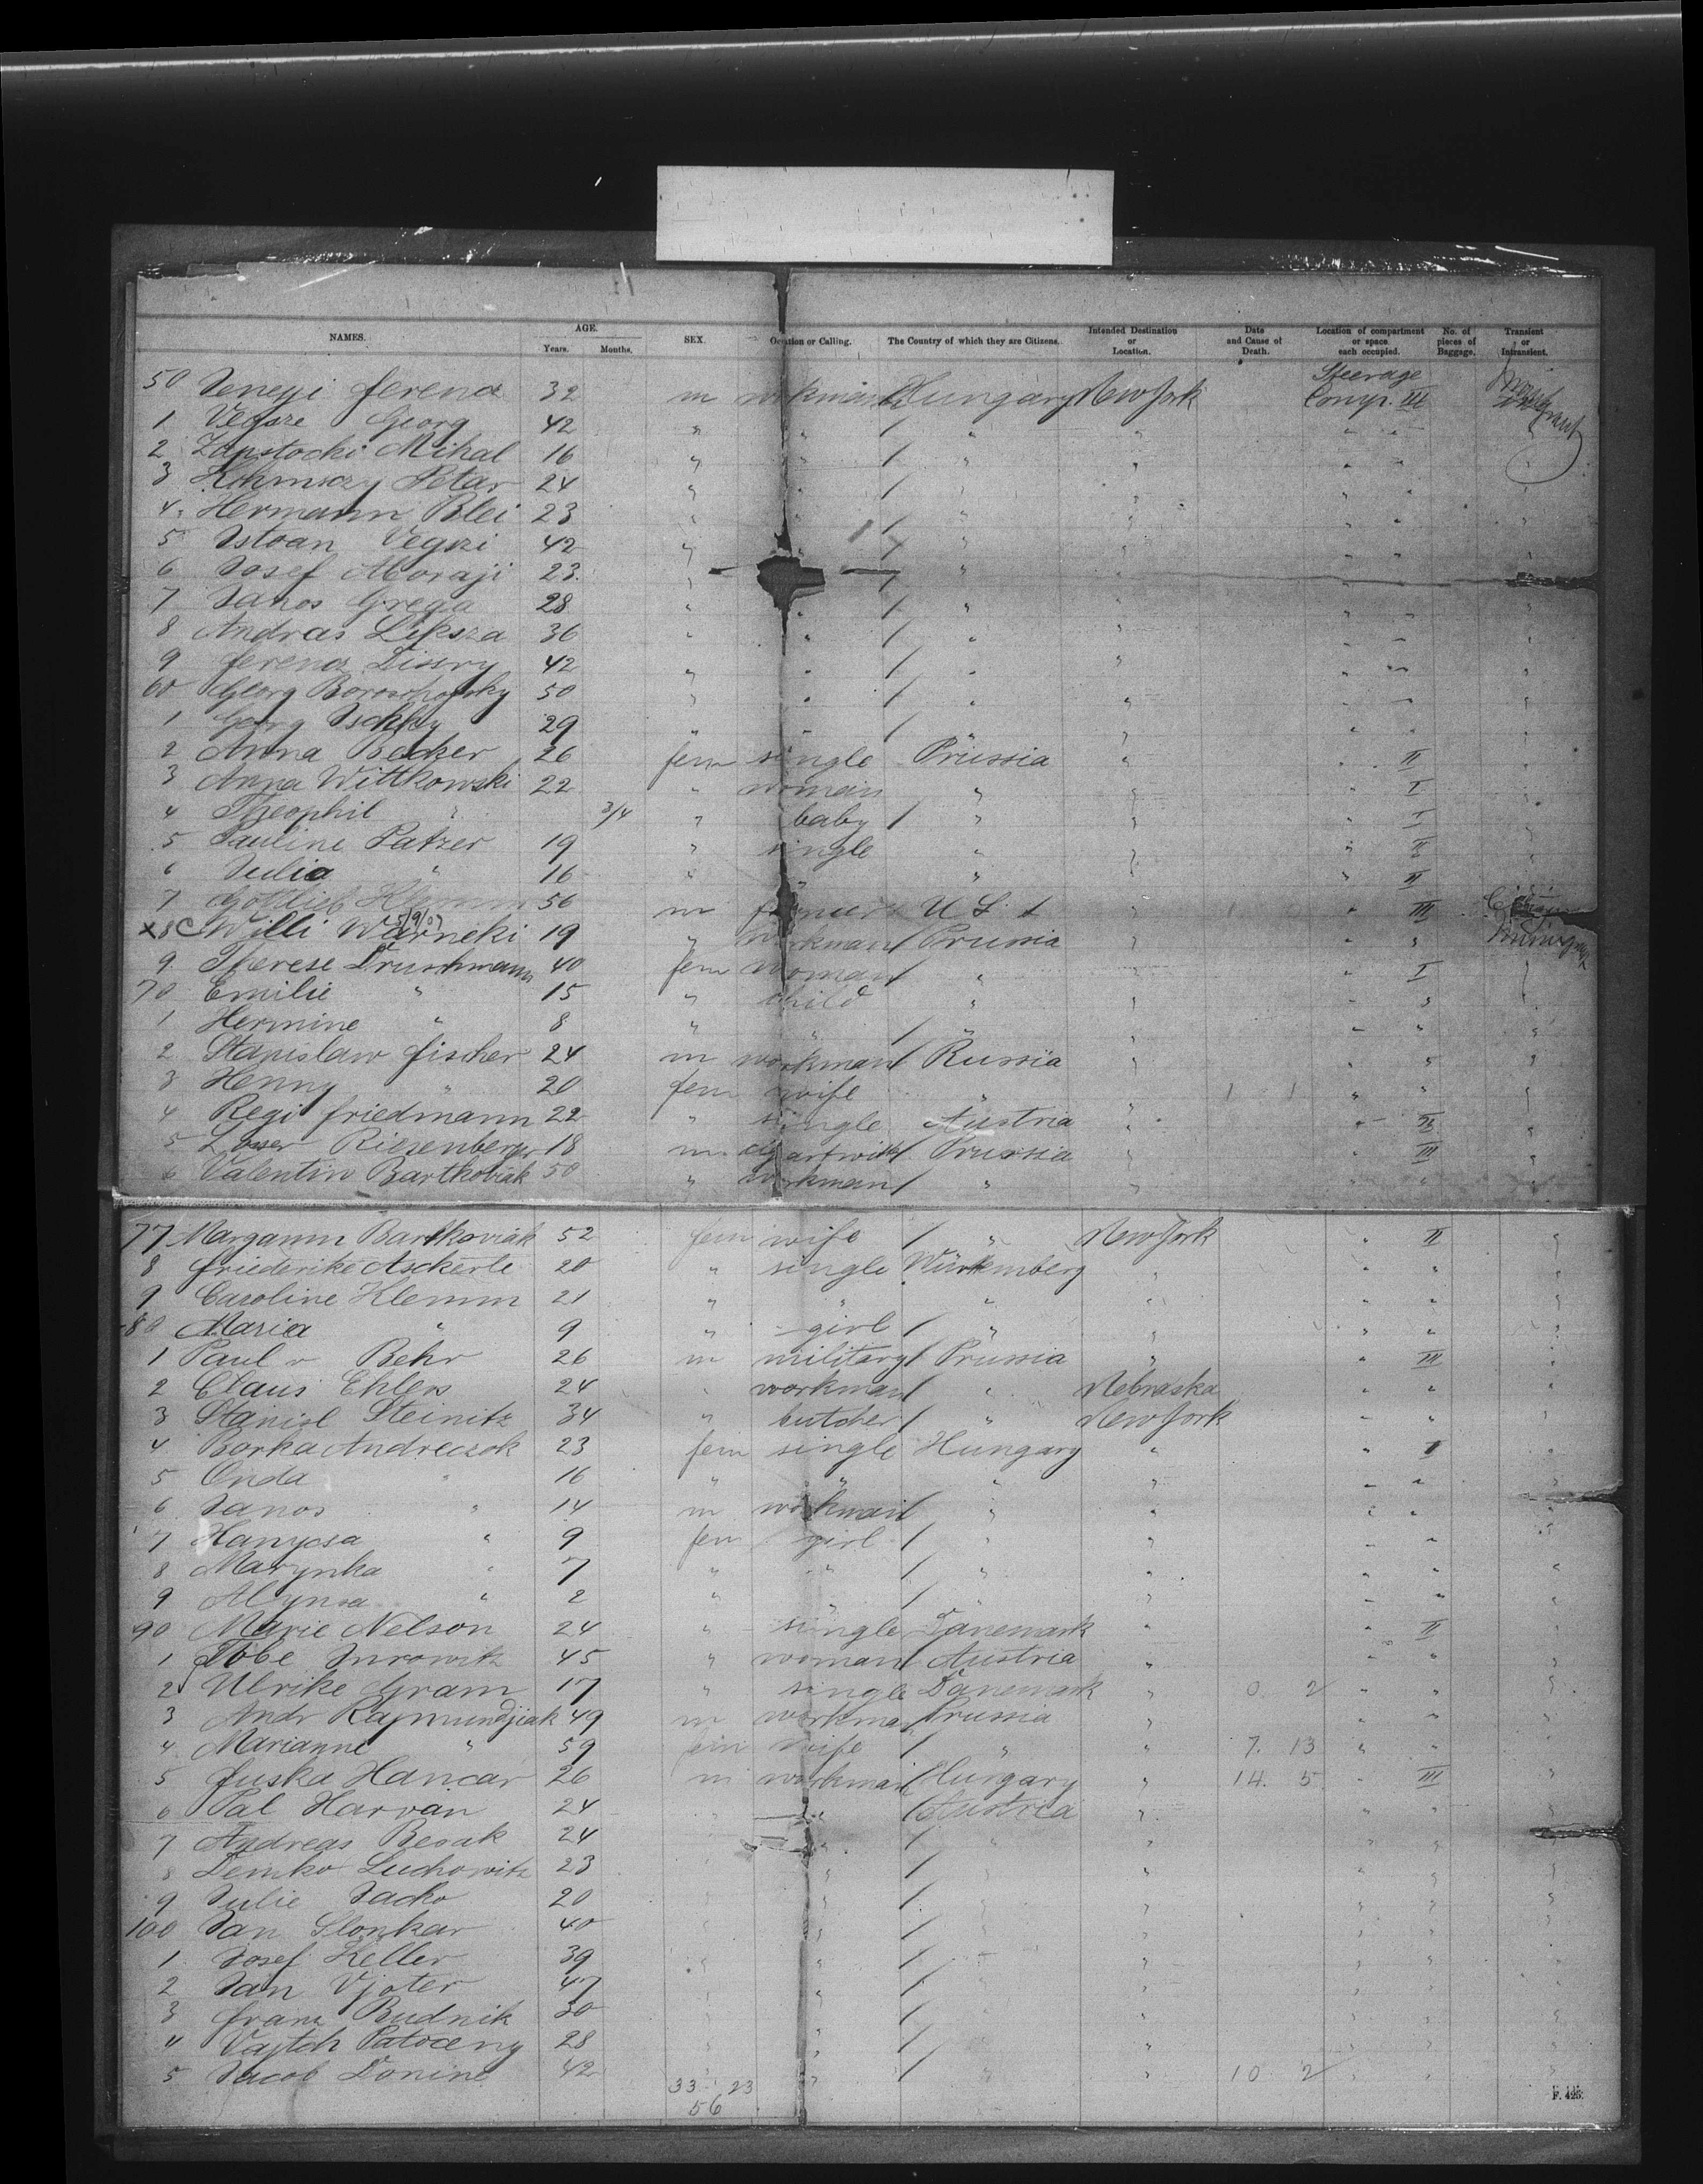 NAMES. AGE. Years. Months. SEX. Occupation or Calling. The Country of which they are Citizens. Intended Destination or Location. Date and Cause of Death. Location of compartment or space each occupied. No. of pieces of Baggage. Transient or Intransient.
50 Ferencz 32 m workman Hungary New York Steerage Comp. III
1 Georg 42 " " / " " " "
2 Mihal 16 " " / " " " "
3 Petar 24 " " / " " " "
4. Hermann Blei 23 " " / " " " "
5 Istoan Vegszi 42 " " / " " " "
6 Josef Moraji 23. " / " " " "
7 Janos Grega 28 " " / " " " "
8 Andras Liksza 36 " " / " " " "
9 Ferencz 42 " " / " " " "
60 Georg 50 " " / " " " "
1 Georg 29 " " / " " " "
2 Anna Becker 26 fem single Prussia " " II "
3 Anna Wittkowski 22 " woman " " " I "
4 Theophil " 3/4 " baby / " " " I "
5 Pauline Patzer 19 " single " " " II "
6 Julia " 16 " " " " " II "
7 Gottlieb Klemm 56 m U S. " " III
x8 C Willi Warneki 5/9/07 19 " workman / Prussia " " "
9 Therese 40 fem woman / " " " I "
70 Emilie " 15 " child " " " " "
1 Hermine " 8 " " / " " " " "
2 Stanislaw Fischer 24 m workman / Russia " " " "
3 Henny " 20 fem wife " " " " "
4 Regi Friedmann 22 " single Austria " " II "
5 Riesenberger 18 m / Prussia " " III "
6 Valentin Bartkoviak 50 " workman / " " " " "
77 Margamn Bartkoviak 52 fem wife / " New York " II "
8 Friederike Asckerle 20 " single Würtemberg " " " "
9 Caroline Klemm 21 " " " " " " "
80 Maria " 9 " girl / " " " " "
1 Paul v Behr 26 m military / Prussia " " III "
2 Claus Ehlers 24 " workman / " Nebraska " " "
3 Stanisl Steinitz 34 " butcher / " New York " " "
4 Borka Andreczok 23 fem single Hungary " " II "
5 Onda " 16 " " " " " " "
6 Janos " 14 m workman / " " " " "
7 Hanycsa " 9 fem girl / " " " " "
8 Marynka " 7 " " / " " " " "
9 " 2 " " / " " " " "
90 Marie Nelson 24 " single Danemark " " II "
1 Tobe 45 " woman / Austria " " " "
2 Ulrike Gram 17 " single Danemark " 0 2 " " "
3 Andr Rajmundjiak 49 m workman / Prussia " " " "
4 Marianne " 59 fem wife / " " 7. 13 " " "
5 Juska Hancar 26 m workman / Hungary " 14. 5 " III "
6 Pal Harvan 24 " / Austria " " " "
7 Andreas Besak 24 " / " " " " "
8 Demko Luchowitz 23 " / " " " " "
9 Julie Jacko 20 " " / " " " " "
100 Jan Slonkar 40 " " / " " " " "
1 Josef Keller 39 " " / " " " " "
2 Jan Vjoter 47 " " / " " " " "
3 Franz Budnik 30 " " / " " " " "
4 Vajtch Patoceny 28 " " / " " " " "
5 Jacob Donine 42 " " / " " 10 2 " " "
33 23
56
F. 425.